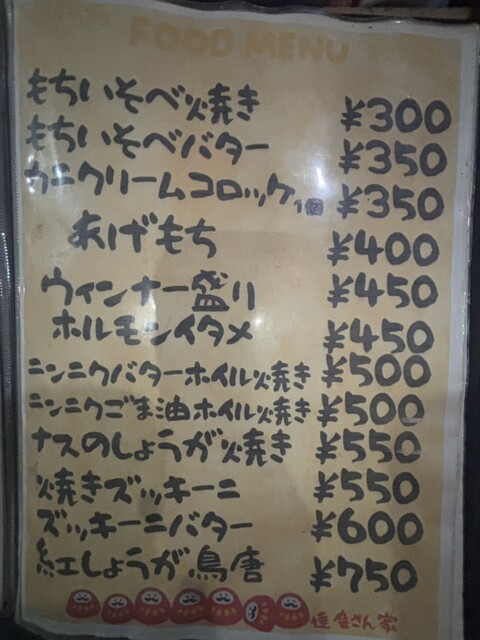 FOOD MENU
もちいそべ焼き ¥300
もちいそべバター ¥350
カニクリームコロッケ1個 ¥350
あげもち ¥400
ウィンナー盛り ¥450
ホルモンイタメ ¥450
ニンニクバターホイル焼き ¥500
ニンニクごま油ホイル焼き ¥500
ナスのしょうが焼き ¥550
焼きズッキーニ ¥550
ズッキーニバター ¥600
紅しょうが鳥唐 ¥750
達磨さん家